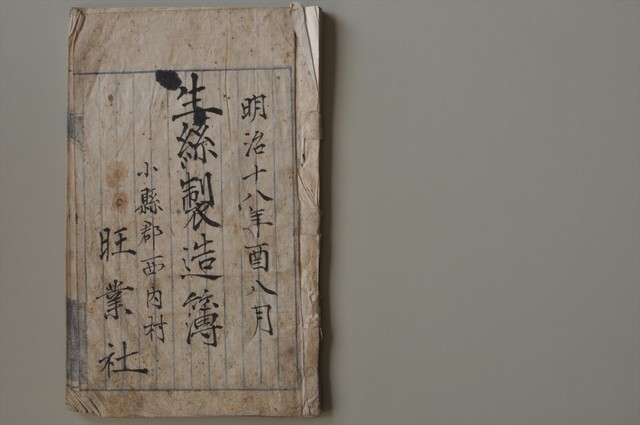 明治十八年酉八月
生絲製造簿
小縣郡西内村
旺業社